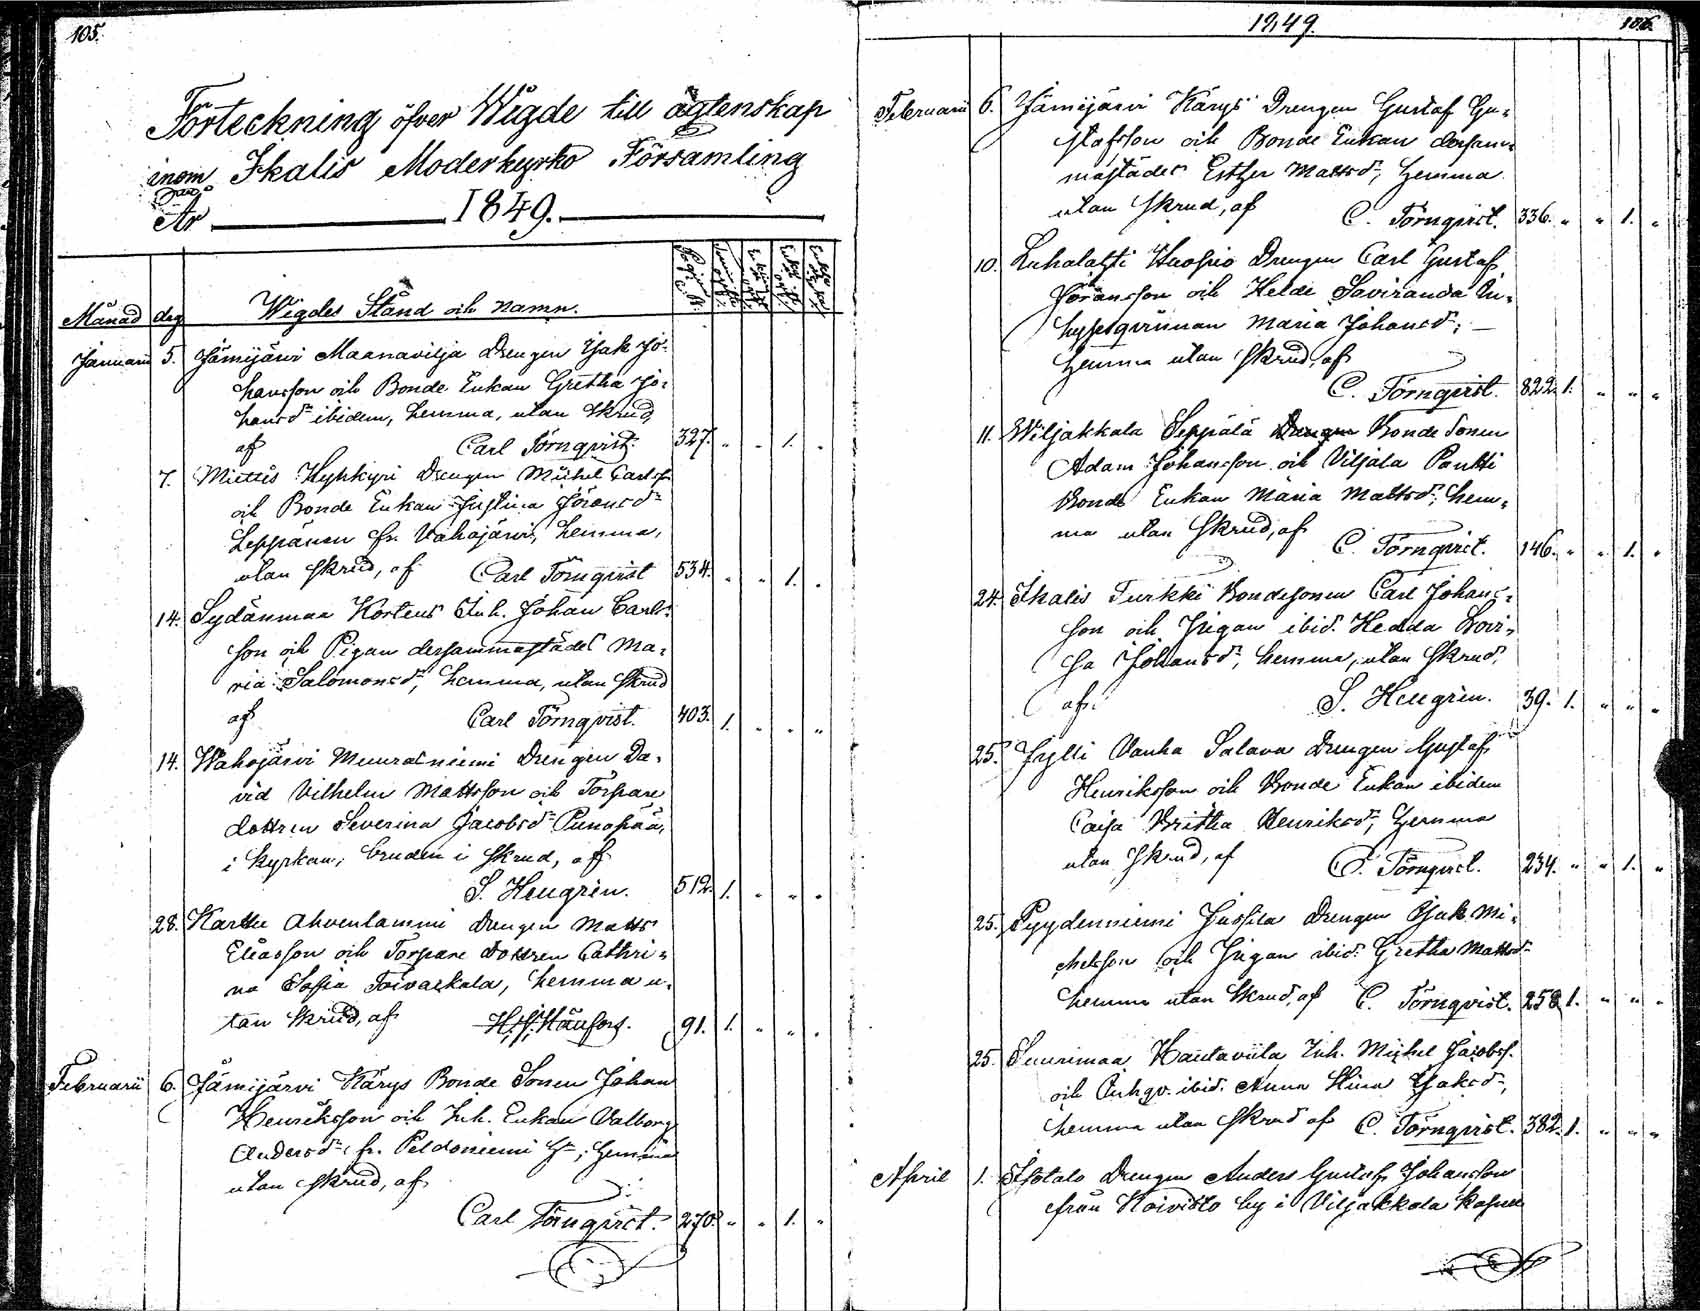 105.
Förteckning öfver Wigde till ägtenskap
inom Ikalis Moderkyrko Församling
År 1849.
Månad dag Wigdes Stånd och namn.
Januarii 5. Jämijärvi Maanavilja Drengen Isak Jo-
hansson och Bonde Enkan Gretha Jo-
hansdr ibidem, hemma, utan skrud,
af Carl Törnqvist. 327. " " 1. "
7. Miettis Kyhkyri Drengen Michel Carlss.
och Bonde Enkan Justina Göransdr
Leppänen fr. Vahojärvi, hemma,
utan skrud, af Carl Törnqvist 534. " " 1. "
14. Sydänmaa Kortens Inh. Johan Carls-
son och Pigan dersammastädes Ma-
ria Salomonsdr, hemma, utan skrud
af Carl Törnqvist. 403. 1. " " "
14. Wahojärvi Muurasniemi Drengen Da-
vid Vilhelm Mattsson och Torpare
dottren Severina Jacobsdr Punapää,
i kyrkan, bruden i skrud, af
S. Heugrén. 512. 1. " " "
28. Karttu Ahvenlammi Drengen Matts
Eliasson och Torpare Dottren Cathri-
na Sofia Toivaskala, hemma u-
tan skrud, af 91. 1. " " "
Februarii 6. Jämijärvi Kärys Bonde Sonen Johan
Henriksson och Inh. Enkan Valborg
Andersdr fr. Peldoniemi hn, hemma
utan skrud, af
Carl Törnqvist. 270. " " 1. "
1849. 106.
Februarii 6. Jämijärvi Kärys Drengen Gustaf Gu-
stafsson och Bonde Enkan dersam-
mastädes Esther Mattsdr, hemma
utan skrud, af C. Törnqvist. 336. " " 1. "
10. Luhalahti Haapio Drengen Carl Gustaf
Göransson och Helde Saviranda In-
hysesqvinnan Maria Johansdr,
hemma utan skrud, af
C. Törnqvist. 822. 1. " " "
11. Wiljakkala Seppälä Drengen Bonde Sonen
Adam Johansson och Viljala Pantti
Bonde Enkan Maria Mattsdr, hem-
ma utan skrud, af C. Törnqvist. 146. " " 1. "
24. Ikalis Turkki Bondesonen Carl Johans-
son och Pigan ibid. Hedda Lovi-
sa Johansdr, hemma, utan skrud,
af S. Heugrén. 39. 1. " " "
25. Jylli Vanha Salava Drengen Gustaf
Henriksson och Bonde Enkan ibidem
Caisa Britha Henriksdr, hemma
utan skrud, af C. Törnqvist. 234. " " 1. "
25. Pyydenniemi Jussila Drengen Isak Mi-
chelsson och Pigan ibid. Gretha Mattsdr
hemma utan skrud, af C. Törnqvist. 258. 1. " " "
25. Suurimaa Hautaviita Inh. Michel Jacobss.
och Inhqv. ibid. Anna Stina Isaksdr,
hemma utan skrud af C. Törnqvist. 382. 1. " " "
April 1. Drengen Anders Gustaf Johansson
från Koivisto by i Viljakkala Kapell